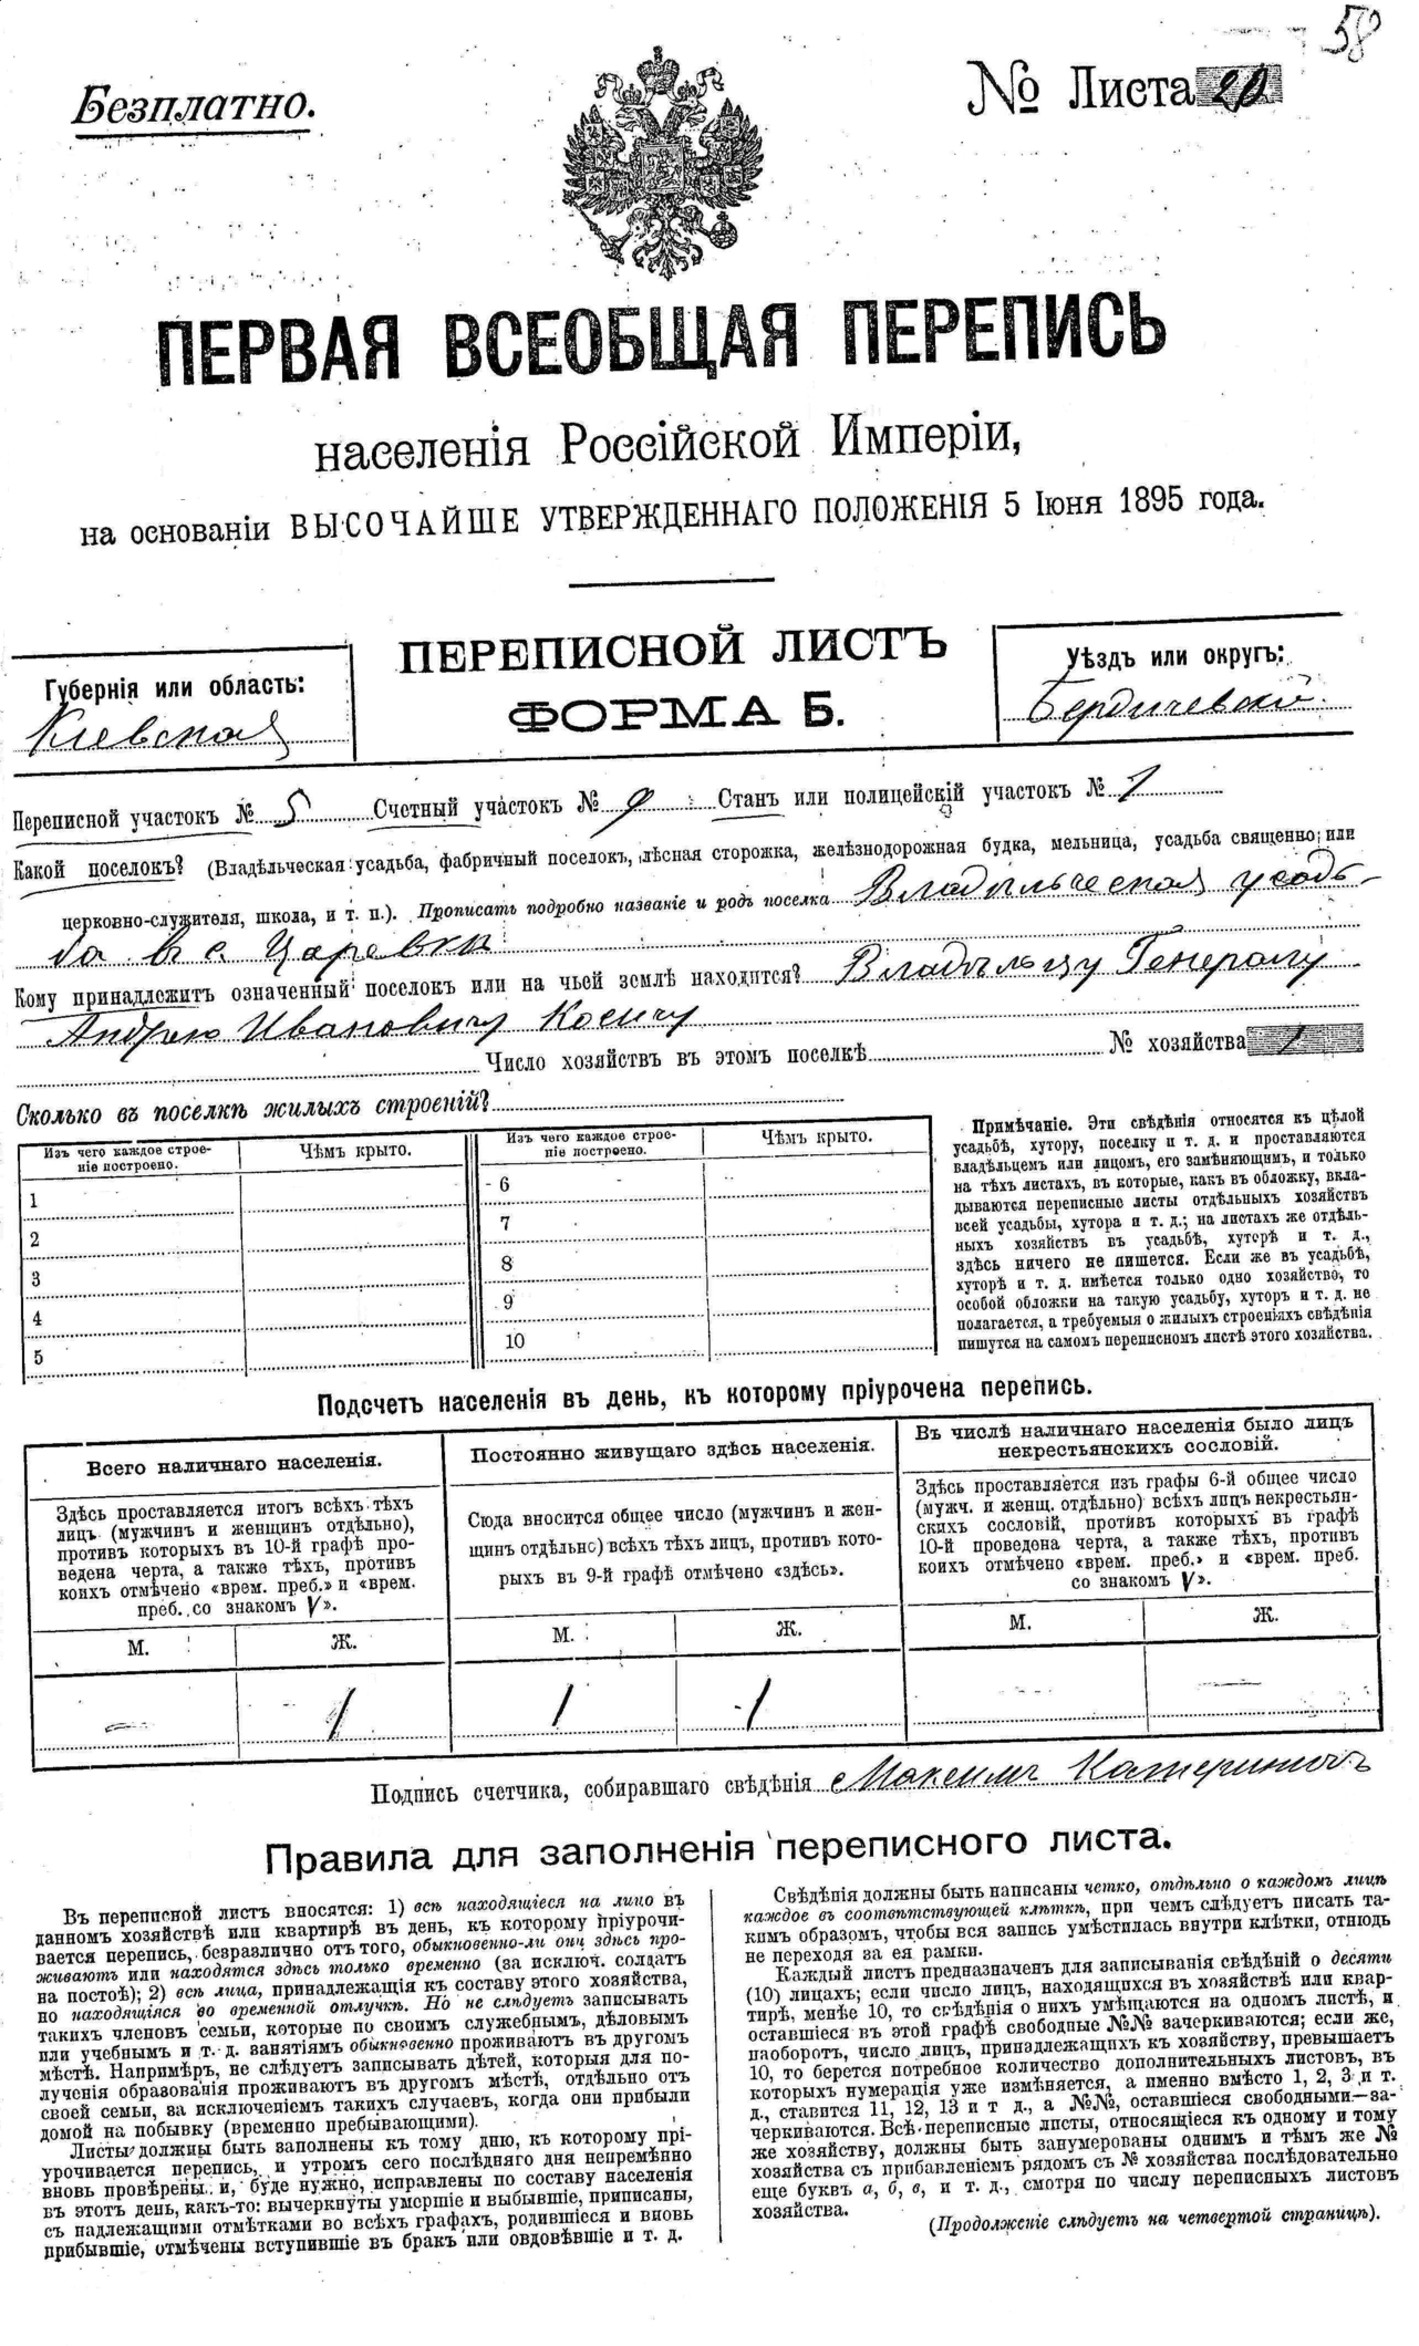 58
Безплатно.
№ Листа 20
ПЕРВАЯ ВСЕОБЩАЯ ПЕРЕПИСЬ
населенія Россійской Имперіи,
на основаніи ВЫСОЧАЙШЕ УТВЕРЖДЕННАГО ПОЛОЖЕНІЯ 5 Іюня 1895 года.
ПЕРЕПИСНОЙ ЛИСТЪ
ФОРМА Б.
Губернія или область:
Кіевская
Уѣздъ или округъ:
Бердичевскій.
Переписной участокъ № 5 Счетный участокъ № 9 Станъ или полицейскій участокъ № 1
Какой поселокъ? (Владѣльческая усадьба, фабричный поселокъ, лѣсная сторожка, желѣзнодорожная будка, мельница, усадьба священно- или
церковно-служителя, школа, и т. п.). Прописать подробно названіе и родъ поселка Владѣльческая усадь-
ба въ с. Царевка
Кому принадлежитъ означенный поселокъ или на чьей землѣ находится? Владѣльцу Генералу
Андрею Ивановичу Косичу
Число хозяйствъ въ этомъ поселкѣ № хозяйства 1
Сколько въ поселкѣ жилыхъ строеній?
Изъ чего каждое строе-
ніе построено.
Чѣмъ крыто.
Изъ чего каждое строе-
ніе построено.
Чѣмъ крыто.
1
2
3
4
5
6
7
8
9
10
Примѣчаніе. Эти свѣдѣнія относятся къ цѣлой
усадьбѣ, хутору, поселку и т. д. и проставляются
владѣльцемъ или лицомъ, его замѣняющимъ, и только
на тѣхъ листахъ, въ которые, какъ въ обложку, вкла-
дываются переписные листы отдѣльныхъ хозяйствъ
всей усадьбы, хутора и т. д.; на листахъ же отдѣль-
ныхъ хозяйствъ въ усадьбѣ, хуторѣ и т. д.,
здѣсь ничего не пишется. Если же въ усадьбѣ,
хуторѣ и т. д. имѣется только одно хозяйство, то
особой обложки на такую усадьбу, хуторъ и т. д. не
полагается, а требуемыя о жилыхъ строеніяхъ свѣдѣнія
пишутся на самомъ переписномъ листѣ этого хозяйства.
Подсчетъ населенія въ день, къ которому пріурочена перепись.
Всего наличнаго населенія.
Здѣсь проставляется итогъ всѣхъ тѣхъ
лицъ (мужчинъ и женщинъ отдѣльно),
противъ которыхъ въ 10-й графѣ про-
ведена черта, а также тѣхъ, противъ
коихъ отмѣчено «врем. преб.» и «врем.
преб. со знакомъ V».
М. Ж.
— 1
Постоянно живущаго здѣсь населенія.
Сюда вносится общее число (мужчинъ и жен-
щинъ отдѣльно) всѣхъ тѣхъ лицъ, противъ кото-
рыхъ въ 9-й графѣ отмѣчено «здѣсь».
М. Ж.
1 1
Въ числѣ наличнаго населенія было лицъ
некрестьянскихъ сословій.
Здѣсь проставляется изъ графы 6-й общее число
(мужч. и женщ. отдѣльно) всѣхъ лицъ некрестьян-
скихъ сословій, противъ которыхъ въ графѣ
10-й проведена черта, а также тѣхъ, противъ
коихъ отмѣчено «врем. преб.» и «врем. преб.
со знакомъ V».
М. Ж.
— —
Подпись счетчика, собиравшаго свѣдѣнія Максимъ Катериничъ
Правила для заполненія переписного листа.
Въ переписной листъ вносятся: 1) всѣ находящіеся на лицо въ
данномъ хозяйствѣ или квартирѣ въ день, къ которому пріурочи-
вается перепись, безразлично отъ того, обыкновенно-ли они здѣсь про-
живаютъ или находятся здѣсь только временно (за исключ. солдатъ
на постоѣ); 2) всѣ лица, принадлежащія къ составу этого хозяйства,
но находящіяся во временной отлучкѣ. Но не слѣдуетъ записывать
такихъ членовъ семьи, которые по своимъ служебнымъ, дѣловымъ
или учебнымъ и т. д. занятіямъ обыкновенно проживаютъ въ другомъ
мѣстѣ. Напримѣръ, не слѣдуетъ записывать дѣтей, которыя для по-
лученія образованія проживаютъ въ другомъ мѣстѣ, отдѣльно отъ
своей семьи, за исключеніемъ такихъ случаевъ, когда они прибыли
домой на побывку (временно пребывающими).
Листы должны быть заполнены къ тому дню, къ которому прі-
урочивается перепись, и утромъ сего послѣдняго дня непремѣнно
вновь провѣрены и, буде нужно, исправлены по составу населенія
въ этотъ день, какъ-то: вычеркнуты умершіе и выбывшіе, приписаны,
съ надлежащими отмѣтками во всѣхъ графахъ, родившіеся и вновь
прибывшіе, отмѣчены вступившіе въ бракъ или овдовѣвшіе и т. д.
Свѣдѣнія должны быть написаны четко, отдѣльно о каждомъ лицѣ
каждое въ соотвѣтствующей клѣткѣ, при чемъ слѣдуетъ писать та-
кимъ образомъ, чтобы вся запись умѣстилась внутри клѣтки, отнюдь
не переходя за ея рамки.
Каждый листъ предназначенъ для записыванія свѣдѣній о десяти
(10) лицахъ; если число лицъ, находящихся въ хозяйствѣ или квар-
тирѣ, менѣе 10, то свѣдѣнія о нихъ умѣщаются на одномъ листѣ, и
оставшіеся въ этой графѣ свободные №№ зачеркиваются; если же,
наоборотъ, число лицъ, принадлежащихъ къ хозяйству, превышаетъ
10, то берется потребное количество дополнительныхъ листовъ, въ
которыхъ нумерація уже измѣняется, а именно вмѣсто 1, 2, 3 и т.
д., ставится 11, 12, 13 и т д., а №№, оставшіеся свободными—за-
черкиваются. Всѣ переписные листы, относящіеся къ одному и тому
же хозяйству, должны быть занумерованы однимъ и тѣмъ же №
хозяйства съ прибавленіемъ рядомъ съ № хозяйства послѣдовательно
еще буквъ а, б, в, и т. д., смотря по числу переписныхъ листовъ
хозяйства.
(Продолженіе слѣдуетъ на четвертой страницѣ).